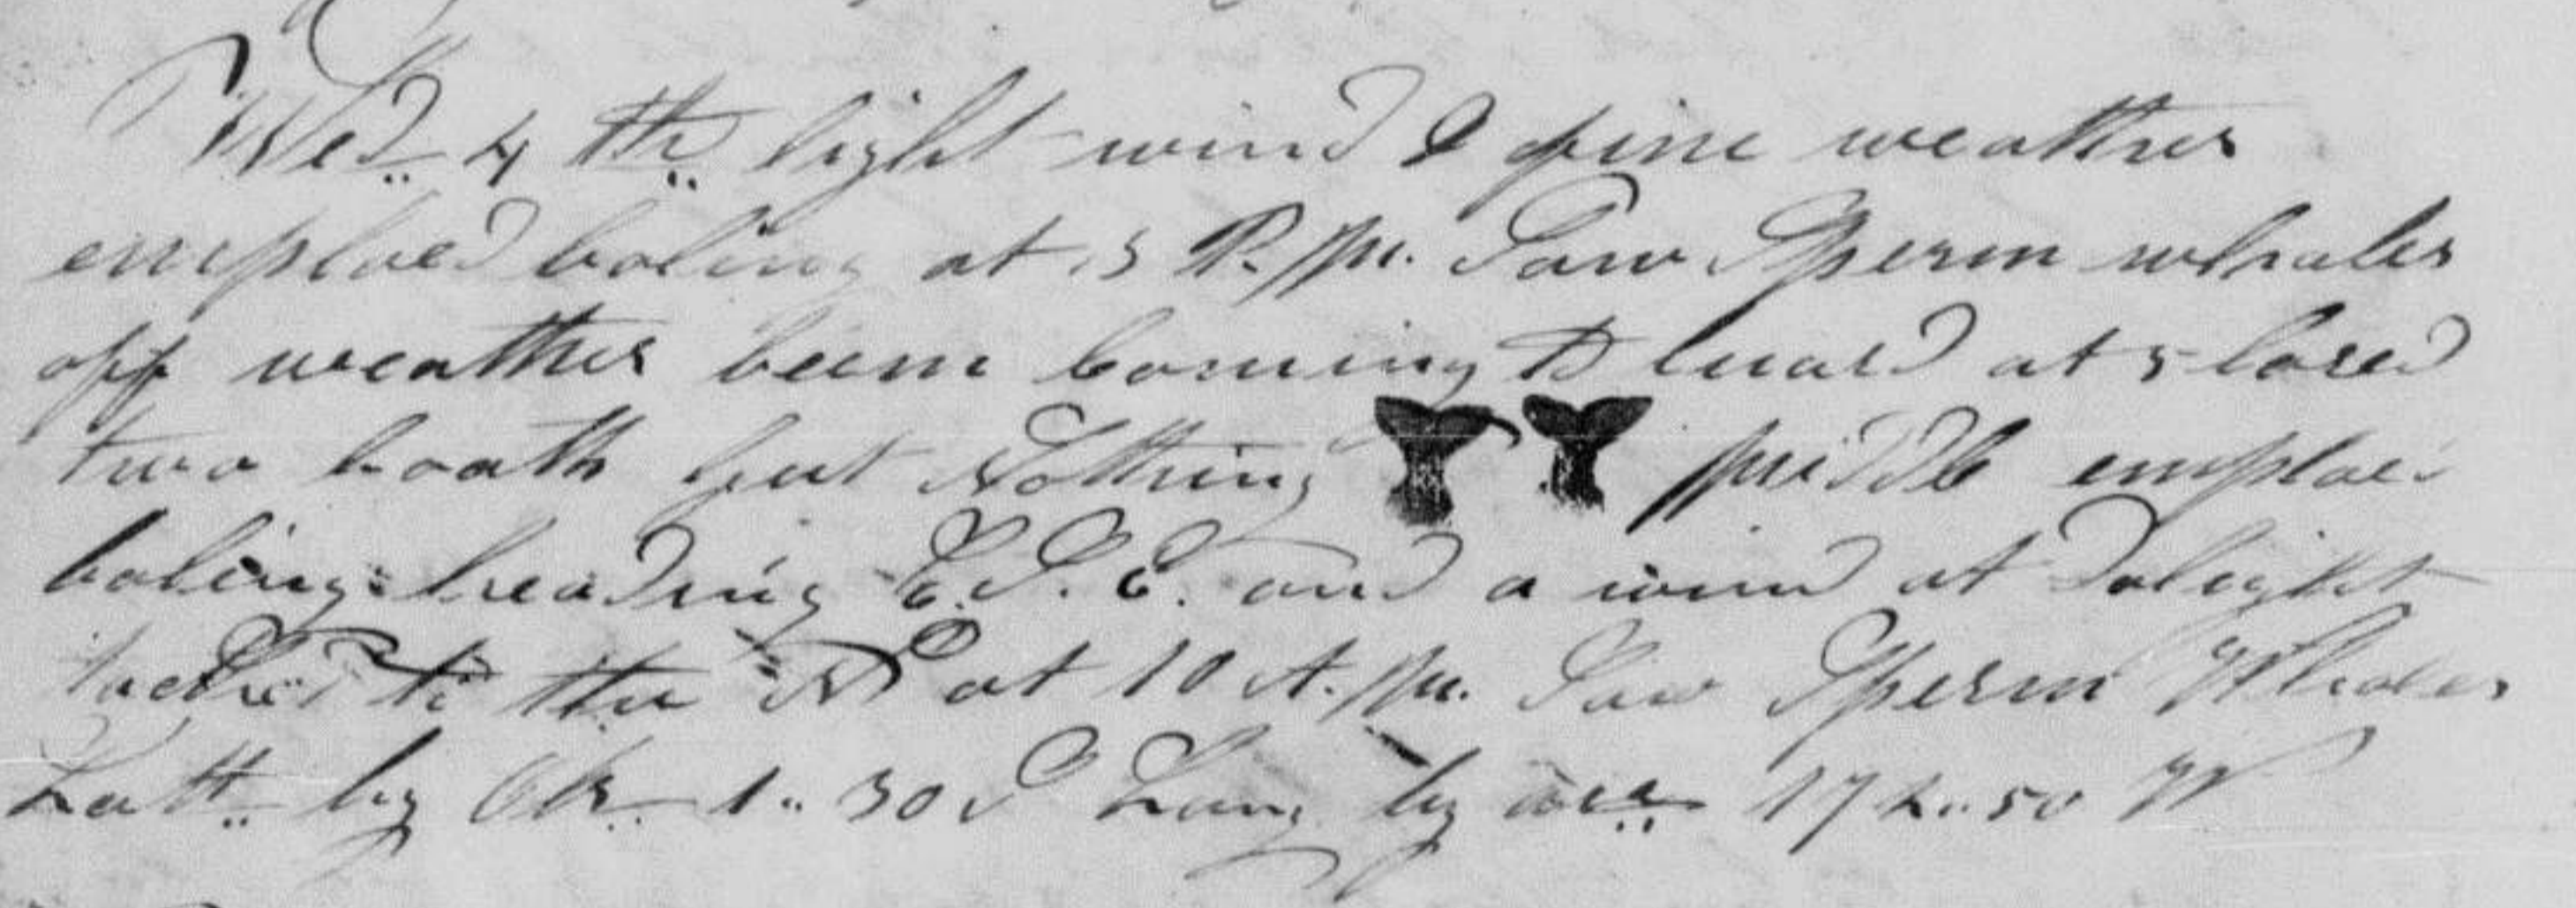 Wed 4 th light wind & fine weather
emploed boling at 3 P. M. Saw Sperm whales
off weather beem Coming to luard at 5 lored
two boats gut Nothing middle emploed
boling heading E. S. E. and a wind at Dalight
tacked to the N at 10 A. M. Saw Sperm Whales
Latt by Ob 1.. 30 S Long by 172.. 50 W